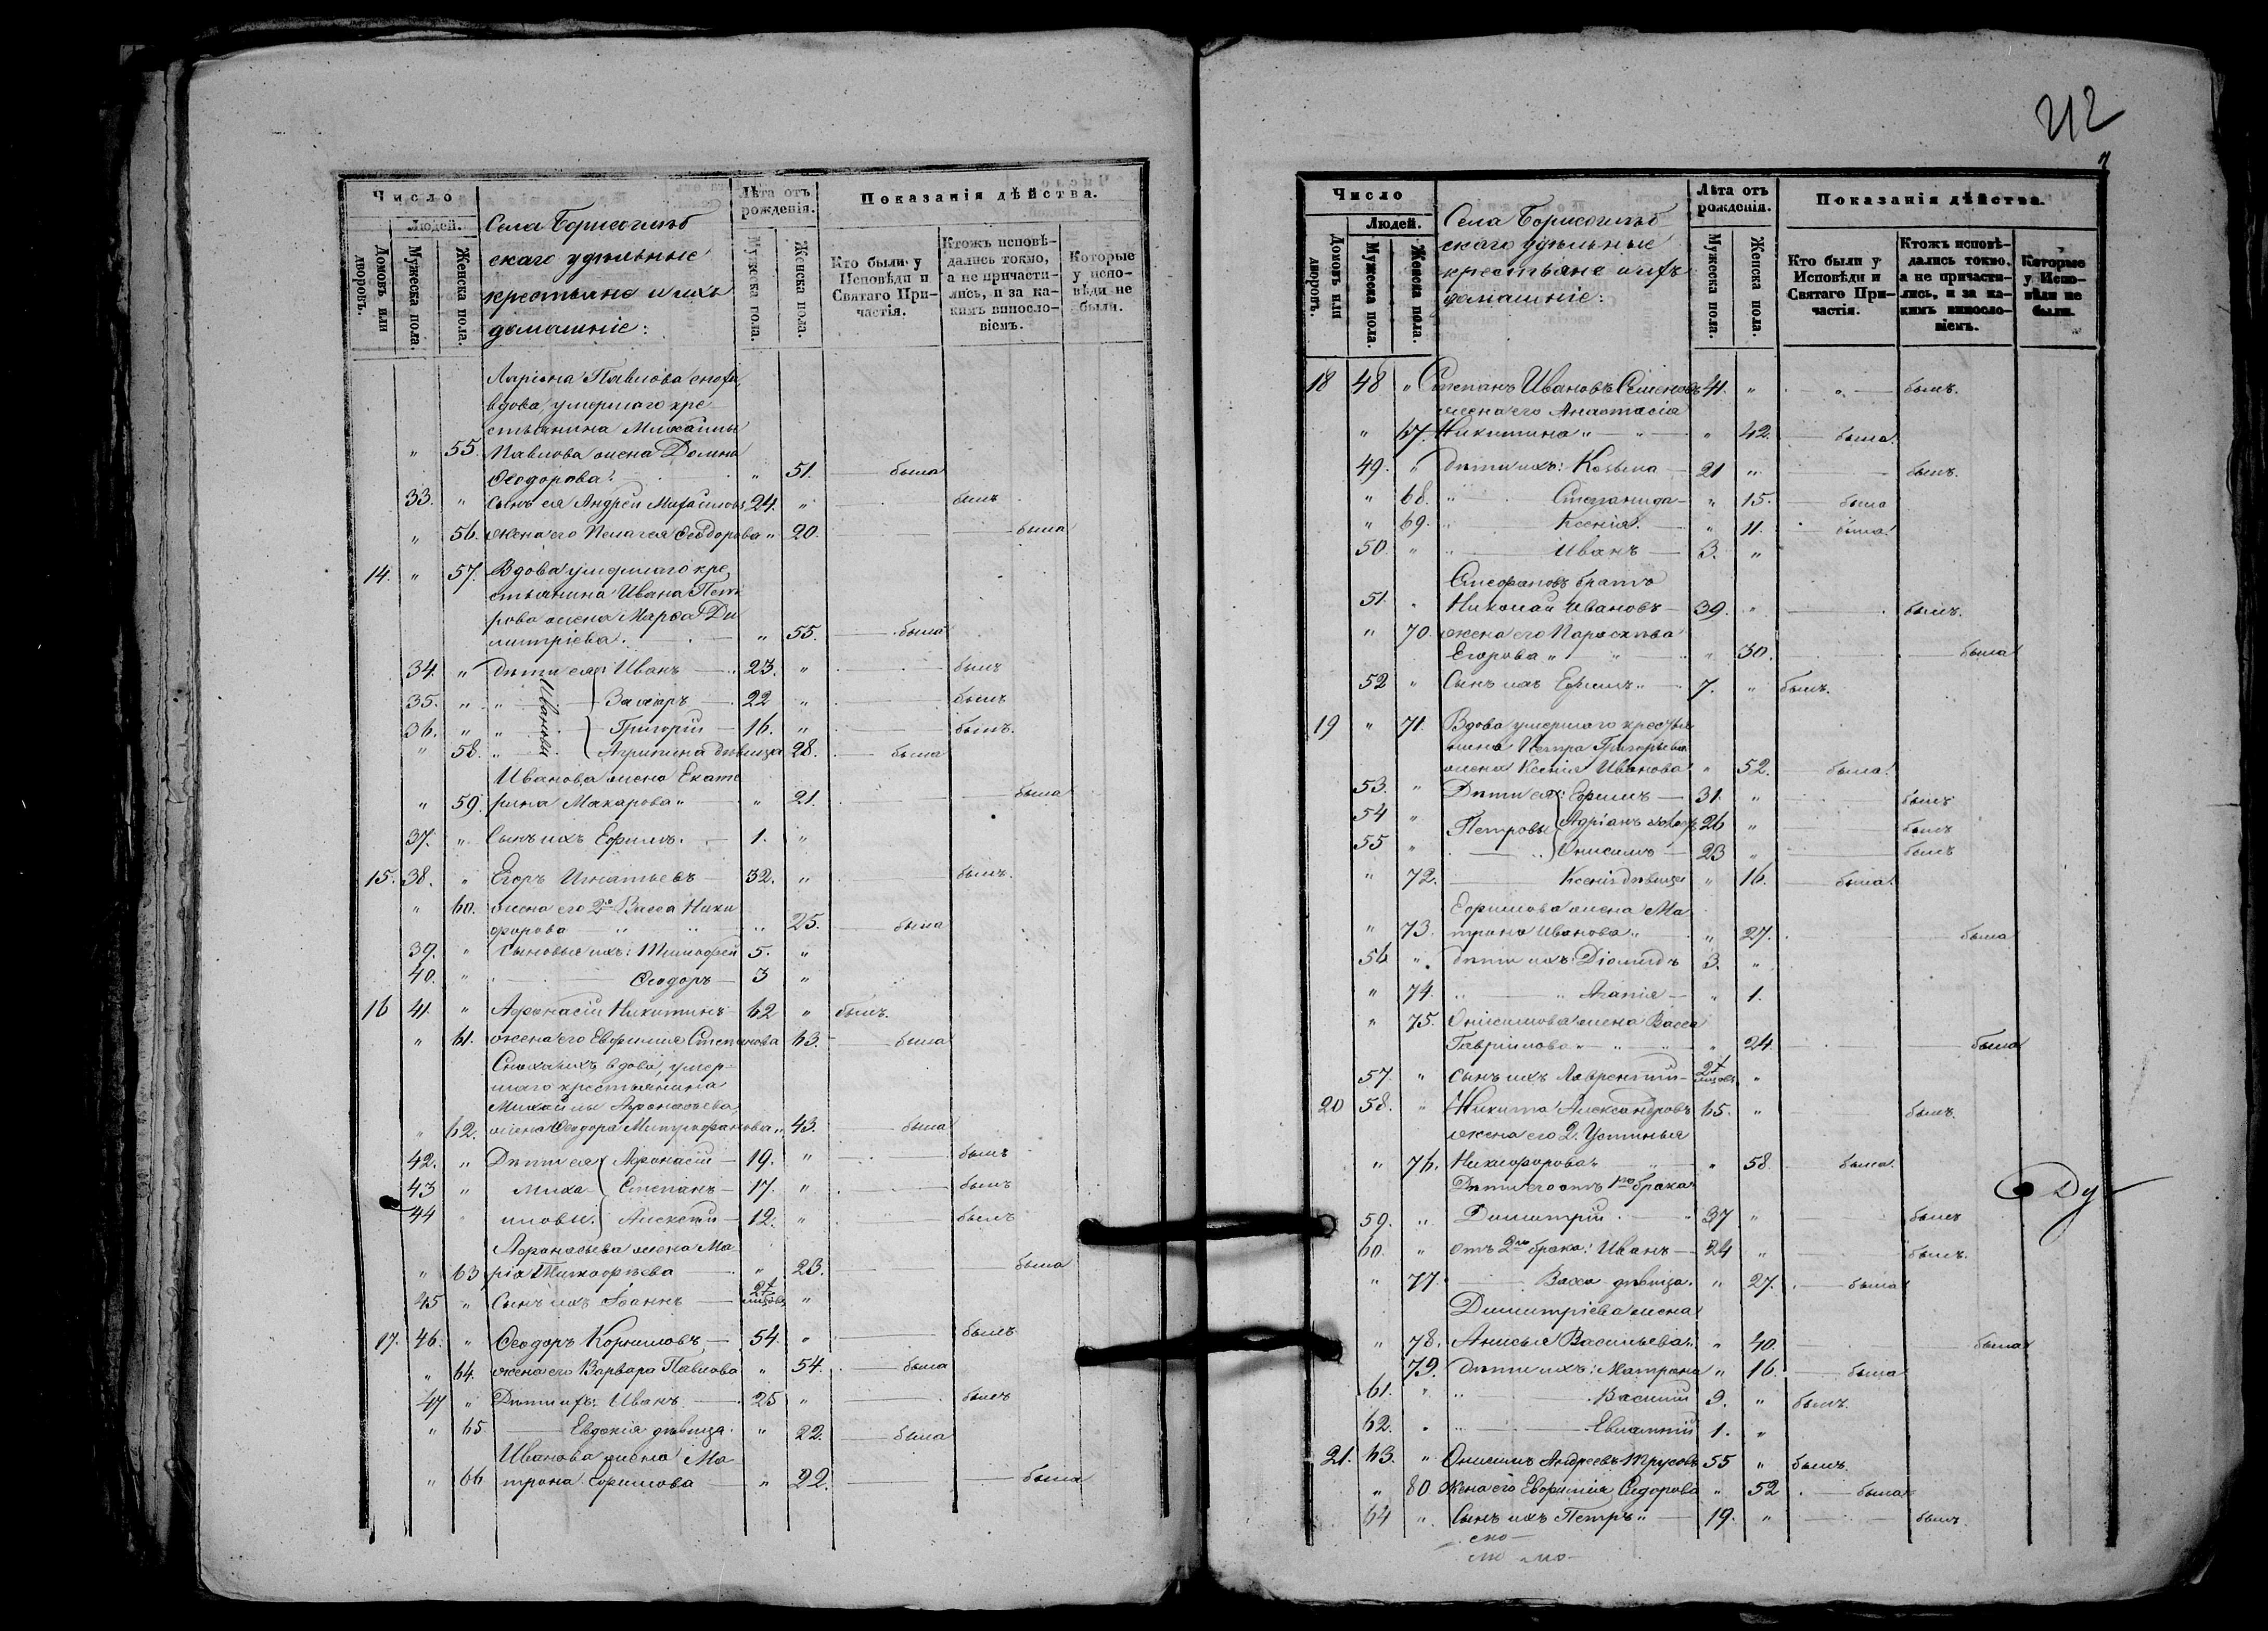 212
7
Число
Людей.
Домовъ или дворовъ.
Мужеска пола.
Женска пола.
Села Борисоглѣб
скаго удѣльные
крестьяне и ихъ
домашніе:
Лѣта отъ рожденія.
Мужеска пола.
Женска пола.
Показанія дѣйства.
Кто были у Исповѣди и Святаго Причастія.
Ктожъ исповѣдались токмо, а не причастились, и за какимъ винословіемъ.
Которые у исповѣди не были.
Ларіона Павлова сноха
вдова, умершаго кре
стьянина Михайлы
" 55. Павлова жена Домна
Ѳеодорова. " 51. была
33. " Сынъ ея Андрей Михайловъ 24. " былъ
" 56. жена его Пелагея Ѳеодорова " 20. была
14. " 57. Вдова умершаго кре
стьянина Ивана Пет
рова жена Марѳа Ди
митріева. " 55. была
34. " дѣти ея: Иванъ 23. " былъ
Ивановы
35. " " Захаръ 22 " былъ
36. " " Григорій 16. " былъ.
" 58. " Агрипина дѣвица 28. была
Иванова жена Екате
" 59. рина Макарова " " 21. была
37. " Сынъ ихъ Ефимъ. 1. "
15. 38. " Егоръ Игнатьевъ 32. " былъ.
" 60. жена его 2я Васса Ники
форова " " " 25. была
39. " Сыновья ихъ: Тимофей 5. "
40. " Ѳеодоръ 3 "
16 41. " Афонасій Никитинъ 62 " былъ.
" 61. жена его Евфимія Степанова 63. была
Сноха ихъ вдова, умер
шаго крестьянина
Михайлы Афонасьева
" 62. жена Ѳеодора Митрофанова " 43. была
42. " Дѣти ея Афонасій 19. " былъ
43 " Миха Степанъ 17. " былъ
44 " иловы. Алексѣй 12. " былъ
Афонасьева жена Ма
" 63 рія Тимофѣева " 23. была
45 " Сынъ ихъ Іоаннъ "
17. 46. " Ѳеодоръ Корниловъ 54. " былъ
" 64. жена его Варвара Павлова " 54. была
47 " Дѣти ихъ: Иванъ 25 " былъ
" 65 Евдокія дѣвица. " 22. была
Иванова жена Ма
" 66 трона Ефимова " 22. была
Число
Людей.
Домовъ или дворовъ.
Мужеска пола.
Женска пола.
Села Борисоглѣб
скаго удѣльные
крестьяне и ихъ
домашніе:
Лѣта отъ рожденія.
Мужеска пола.
Женска пола.
Показанія дѣйства.
Кто были у Исповѣди и Святаго Причастія.
Ктожъ исповѣдались токмо, а не причастились, и за какимъ винословіемъ.
Которые у Исповѣди не были.
18 48 " Степанъ Ивановъ Семеновъ 41. " " былъ.
жена его Анастасія
" 67. Никитина " " " 42. была.
49. " дѣти ихъ: Козьма 21 " былъ.
" 68. " Степанида " 15. была
" 69. " Ксенія. " 11. была
50. " " Иванъ 3. "
Стефановъ братъ
51. " Николай Ивановъ 39. " былъ.
" 70. жена его Парасковья
Егорова " " " 30. была
52 " Сынъ ихъ Ефимъ " 7. " былъ.
19 " 71. Вдова умершаго крестья
нина Петра Григорьева
жена Ксенія Иванова " 52. была.
53. " Дѣти ея: Ефимъ 31. " былъ
54 " Петровы Адріанъ холост. 26 " былъ
55 " Онисимъ 23 " былъ
" 72. Ксенія дѣвица " 16. была.
Ефимова жена Ма
" 73. трона Иванова " " 27. была
56 " дѣти ихъ: Діомидъ 3. "
" 74. " " Агапія " 1.
" 75. Онисимова жена Васса
Гаврилова " " " " 24. была
57. " Сынъ ихъ Лаврентій "
20 58. " Никита Александровъ 65. " былъ.
жена его 2. Устинья
" 76. Никифорова " " 58. была.
Дѣти его отъ 1го брака
59. " Димитрій " 37 " былъ
60. " отъ 2го брака: Иванъ 24 " былъ.
" 77. Васса дѣвица. " 27. была
Димитріева жена
" 78. Анисья Васильева " " 40. была
79. дѣти ихъ: Матрона " 16. была
61. " " Василій 9. " былъ.
62. " " Евлампій 1. "
21. 63. " Онисимъ Андреевъ Трусовъ 55 " былъ.
" 80. Жена его Евфимія Сидорова " 52 была
64 " Сынъ ихъ Петръ " 19. " былъ.